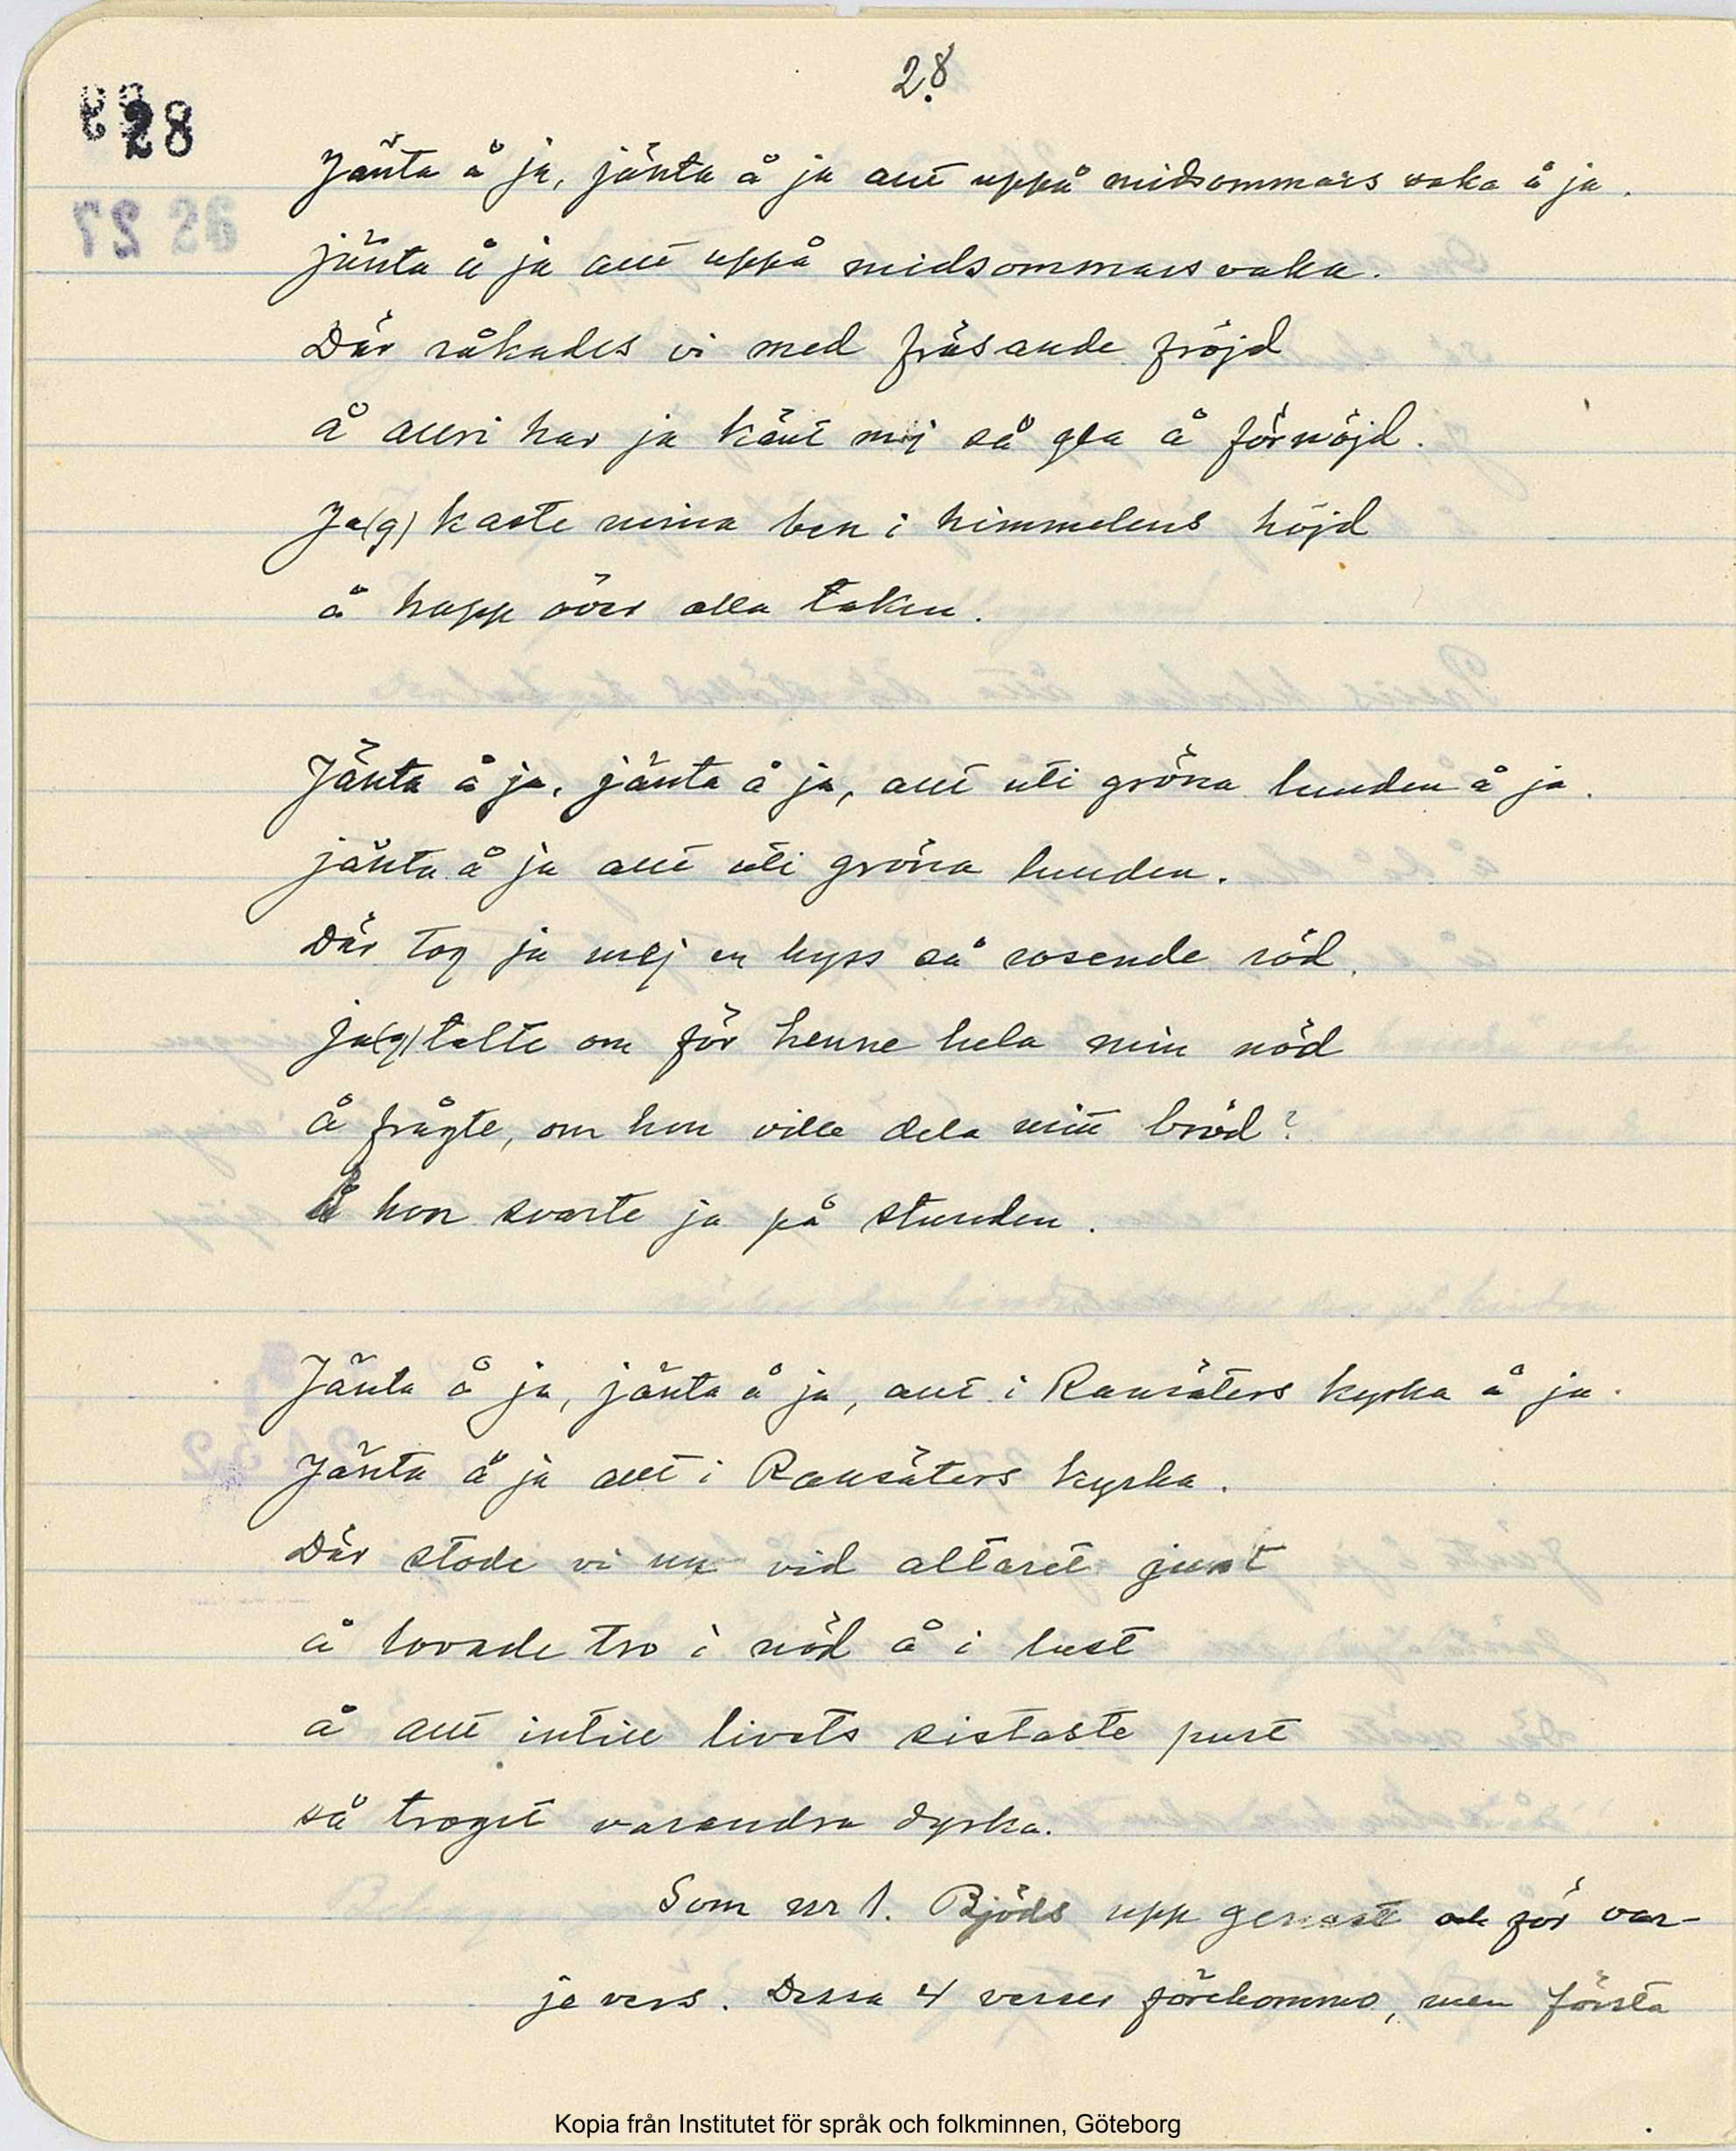 28.
28
26
27
Jänta å ja, jänta å ja allt uppå midsommars vaka å ja.
jänta å ja allt uppå midsommarsvaka.
Där råkades vi med fräsande fröjd
å allri har ja känt mej så gla å förnöjd.
Ja(g) kaste mina ben i himmelens höjd
å hupp över alla taken.
Jänta å ja, jänta å ja, allt uti gröna lunden å ja.
jänta å ja allt uti gröna lunden.
Där tog ja mej en kyss så rosende röd.
ja(g) talte om för henne hela min nöd
å frågte, om hon ville dela mitt bröd?
Å hon svarte ja på stunden.
Jänta å ja, jänta å ja, allt i Ransäters kyrka å ja.
Jänta å ja allt i Ransäters kyrka.
Där stode vi nu vid altaret just
å lovade tro i nöd å i lust
å allt intill livets sistaste pust
så troget varandra dyrka.
Som nr 1. Bjöds upp genast och för var-
je vers. Dessa 4 verser förekommo, men första
Kopia från Institutet för språk och folkminnen, Göteborg